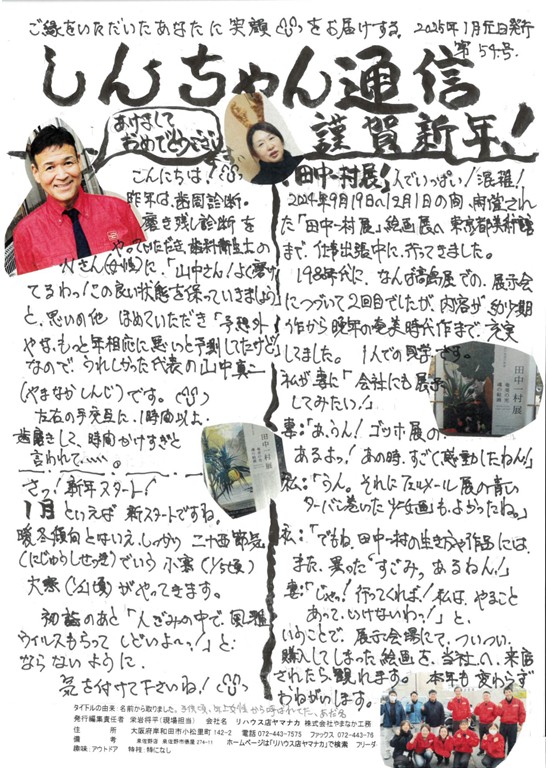 ご縁をいただいたあなたに笑顔をお届けする。2025年1月元旦発行
第54号
しんちゃん通信
謹賀新年!
あけまして
おめでとうございます
こんにちは!
昨年は、歯周診断。
磨き残し診断を
やっていただき、歯科衛生士の
Nさん(女性)に、「山中さん!よく磨け
てるわっ!この良い状態を保っていきましょう」
と、思いの他 ほめていただき「予想外
やな、もっと年相応に悪いと予測してたけど」
なので、うれしかった代表の山中真二
(やまなかしんじ)です。
左右の手交互に、1時間以上、
歯磨きして、時間かけすぎと
言われて……。
さっ!新年スタート!
1月といえば 新スタートですね。
暖冬傾向とはいえ、しっかり 二十四節気
(にじゅうしせっき)でいう 小寒(1/5頃)
大寒(1/20頃)がやってきます。
初詣のあと「人ごみの中で、風邪
ウイルスもらって しどいよ〜っ!」と
ならないように
気を付けて下さいね!
「田中一村展」人でいっぱい!混雑!
2024年9月19日〜12月1日の間、開催され
た「田中一村展」絵画展へ 東京都美術館
まで、仕事出張中に、行ってきました。
1984年代に、なんば高島屋での、展示会
につづいて2回目でしたが、内容が 幼少期
作から 晩年の奄美時代作まで、充実
してました。 1人での見学です。
私が妻に「会社にも展示
してみたい!」
妻:「あ、うん!ゴッホ展の、
あるよっ!あの時、すごく感動したねん!」
私:「うん。それにフェルメール展の青い
ターバン巻いた少女画」もよかったね。」
私:「でもね、田中一村の生き方や作品には、
また、異った"すごみ"あるねん!」
妻:「じゃっ!行ってくれば!私は、やること
あって、いけないわっ!」と、
いうことで、展示会場にて、ついつい
購入してしまった絵画を、当社へ、来店
されたら、観れます。 本年も変わらず
おねがいします。
田中一村展
田中一村展
タイトルの由来:名前から取りました。
発行編集責任者 栄岩将平(現場担当) 会社名 リハウス店ヤマナカ 株式会社やまなか工務
住 所 大阪府岸和田市小松里町142-2 電話 072-443-7575 ファックス 072-443-76
備考 泉佐野店 泉佐野市俵屋274-11 ホームページは「リハウス店ヤマナカ」で検索 フリーダ
趣味:アウトドア 特技:特になし